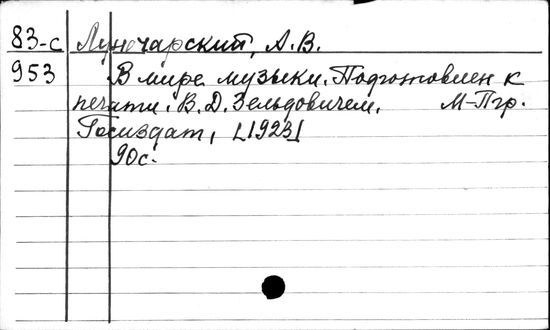 83-с Луначарский, А.В.
953 В мире музыки. Подготовлен к
печати. В. Д. Зельдовичем. М-Пгр.
Госиздат, [1923]
90с.